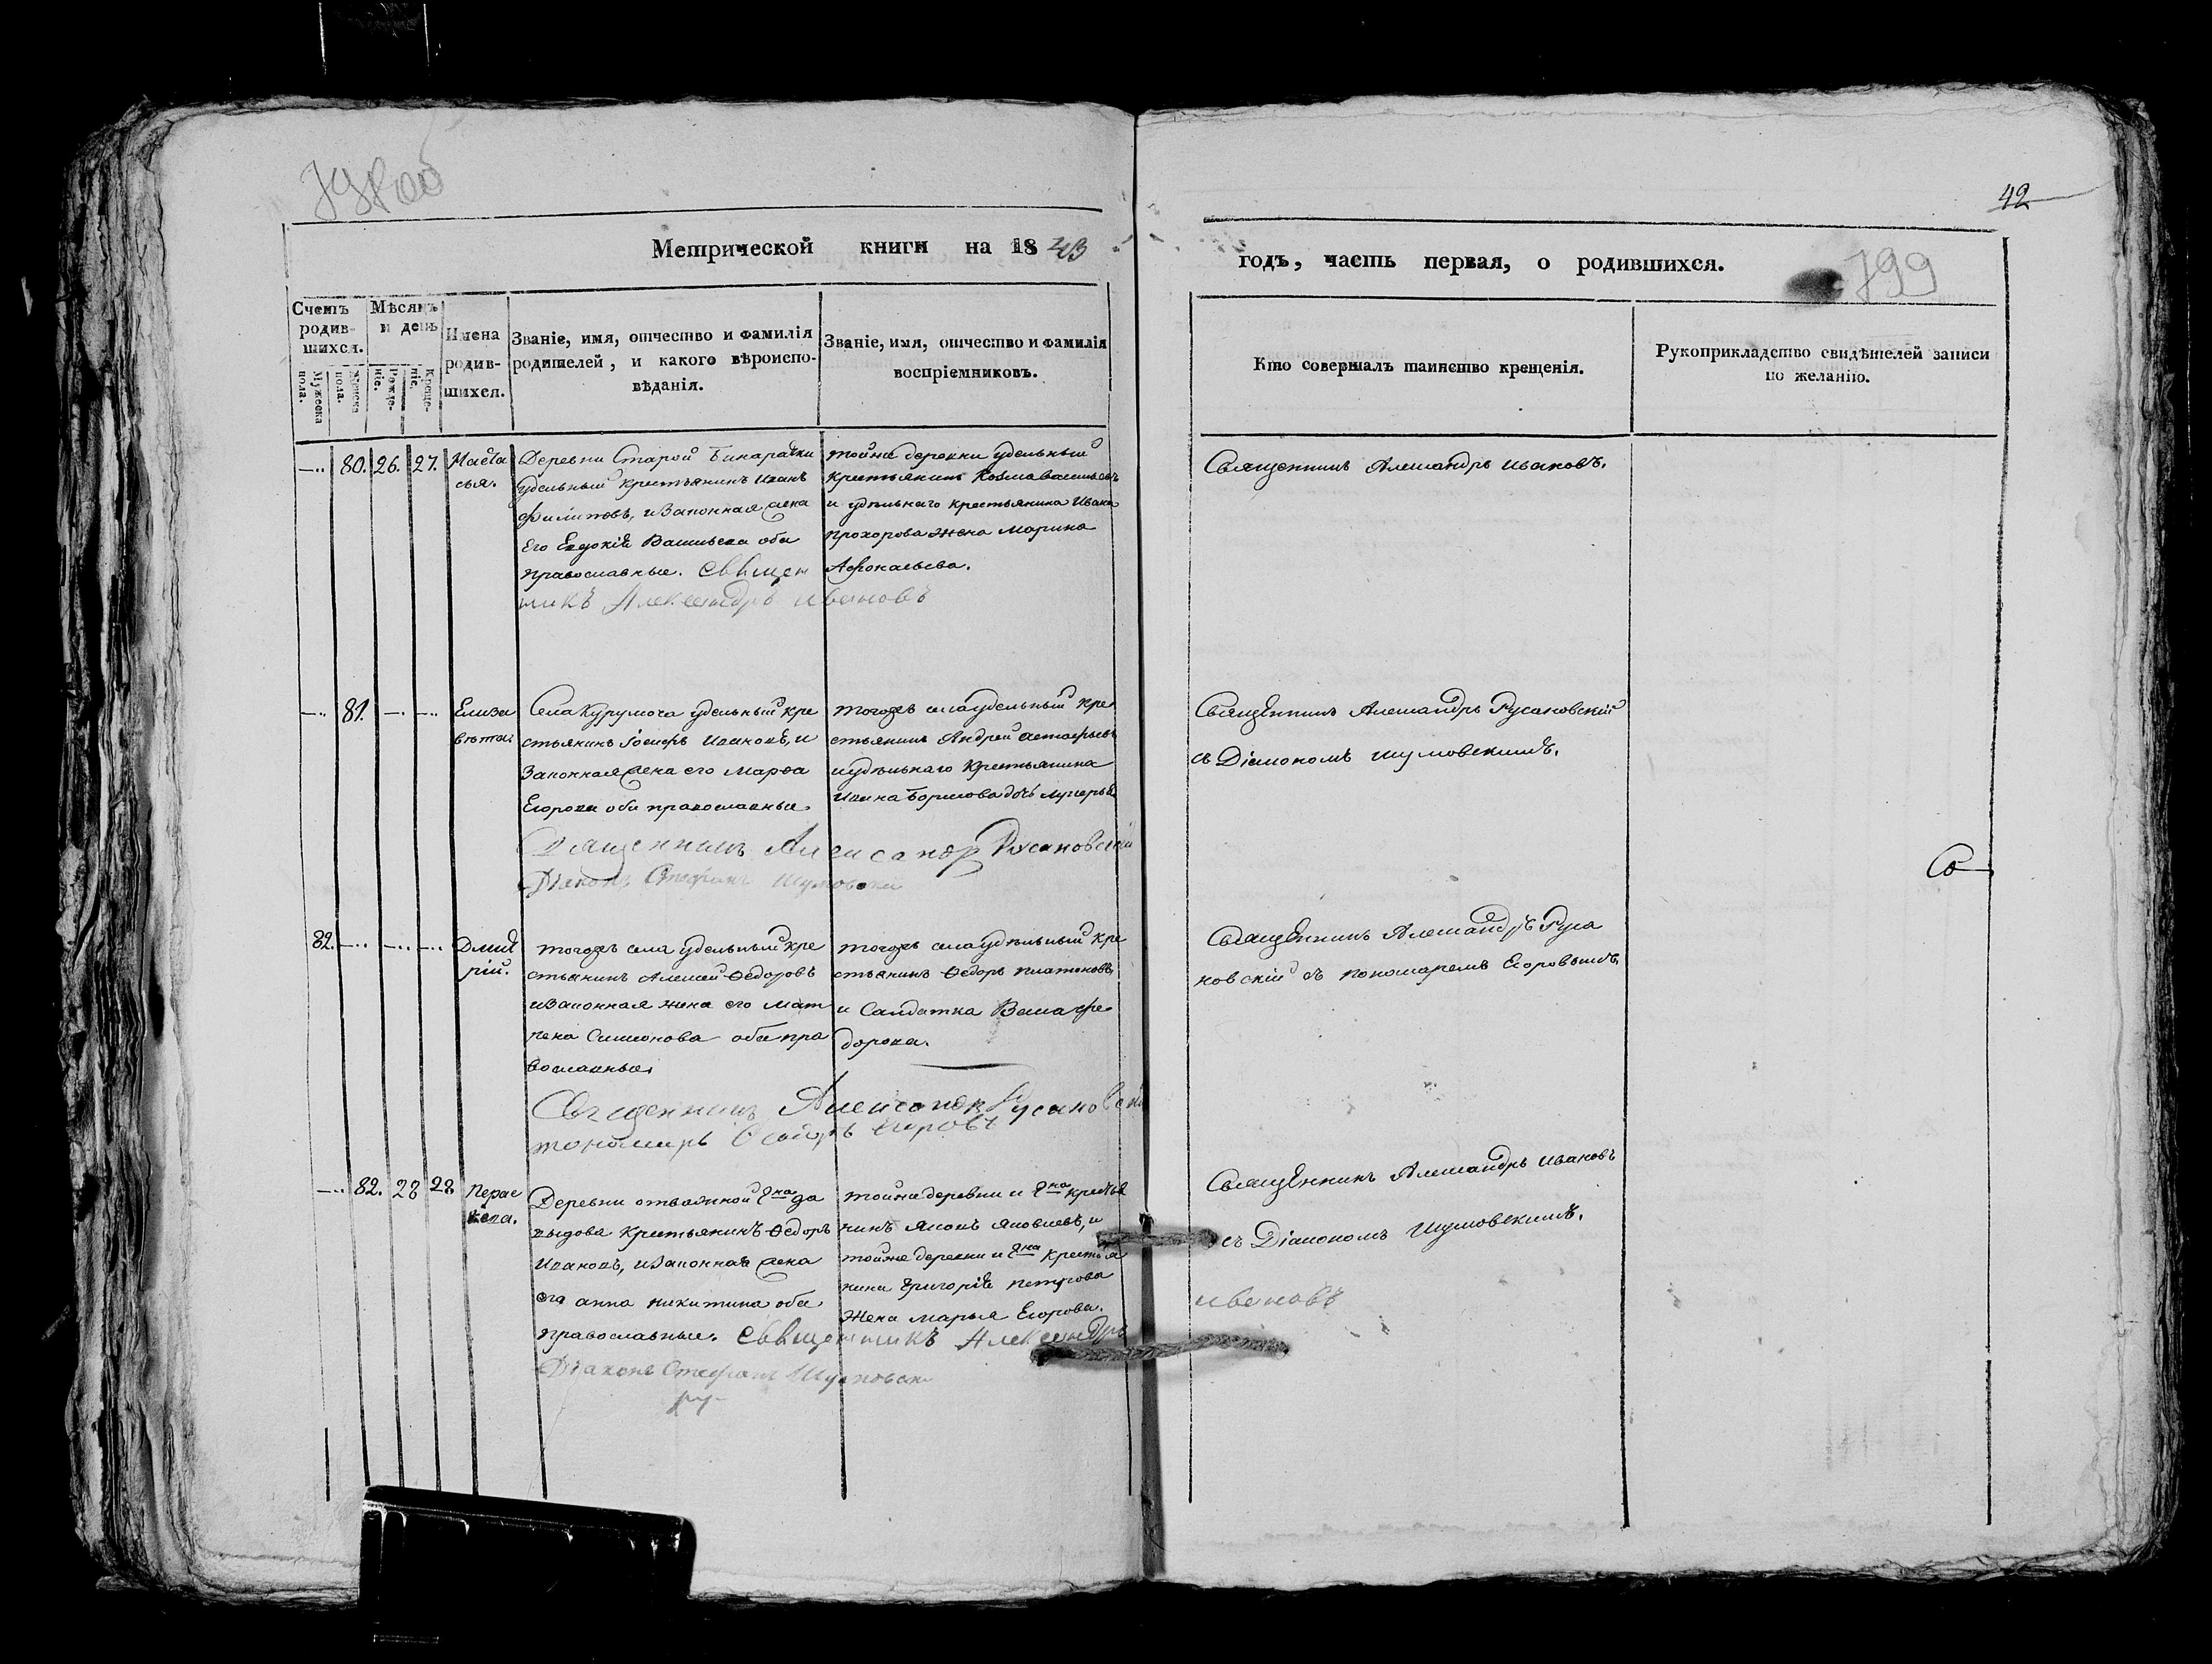 42
799
Метрической книги на 1843
годъ, часть первая, о родившихся.
Счетъ родив-
шихся.
Мужеска пола.
Женска пола.
Мѣсяцъ и день
Рожде-
ніе.
Креще-
ніе.
Имена
родив-
шихся.
Званіе, имя, отчество и фамилія
родителей, и какого вѣроиспо-
вѣданія.
Званіе, имя, отчество и фамилія
воспріемниковъ.
Кто совершалъ таинство крещенія.
Рукоприкладство свидѣтелей записи
по желанію.
80. 26. 27.
Наста
сья.
Деревни Старой Бинарадки
удельный крестьянинъ Иванъ
Филиповъ, и законная жена
его Евдокія Васильева оба
православные. Священ
никъ Александръ Ивановъ
тойже деревни удельный
крестьянинъ Козма Васильевъ
и удельнаго крестьянина Ивана
Прохорова жена Марина
Афонасьева.
Священникъ Александръ Ивановъ.
81.
Елиза
вета.
Села Курумоча удельный кре
стьянинъ Іосифъ Ивановъ, и
законная жена его Марѳа
Егорова оба православные.
Священникъ Александр Русановский
Діаконъ Стефанъ Шумовский
тогожъ села удельный кре
стьянинъ Андрей Астафьевъ
и удельнаго крестьянина
Ивана Борисова дочь Лукерья
Священникъ Александръ Русановскій
съ Діакономъ Шумовскимъ.
Со
82.
Димит
рій.
тогожъ села удельный кре
стьянинъ Алексей Ѳедоровъ
и законная жена его Мат
рена Симионова оба пра
вославные.
Священникъ Александр Русановский
пономарь Ѳедоръ Егоровъ
тогожъ села удельный кре
стьянинъ Ѳедоръ Платоновъ,
и Салдатка Васса Фе
дорова.
Священникъ Александръ Руса
новскій съ пономаремъ Егоровымъ.
82. 28 28
Парас
кева.
Деревни отважной Г на Да
выдова Крестьянинъ Ѳедоръ
Ивановъ, и законная жена
его Анна Никитина оба
православные. Священникъ Александръ
Ивановъ
Діаконъ Стефанъ Шумовски
тойже деревни и Г на крестья
нинъ Яковъ Яковлевъ, и
тойже деревни и Г на крестья
нина Григорія Петрова
жена Марья Егорова.
Священникъ Александръ Ивановъ
съ Діакономъ Шумовскимъ.